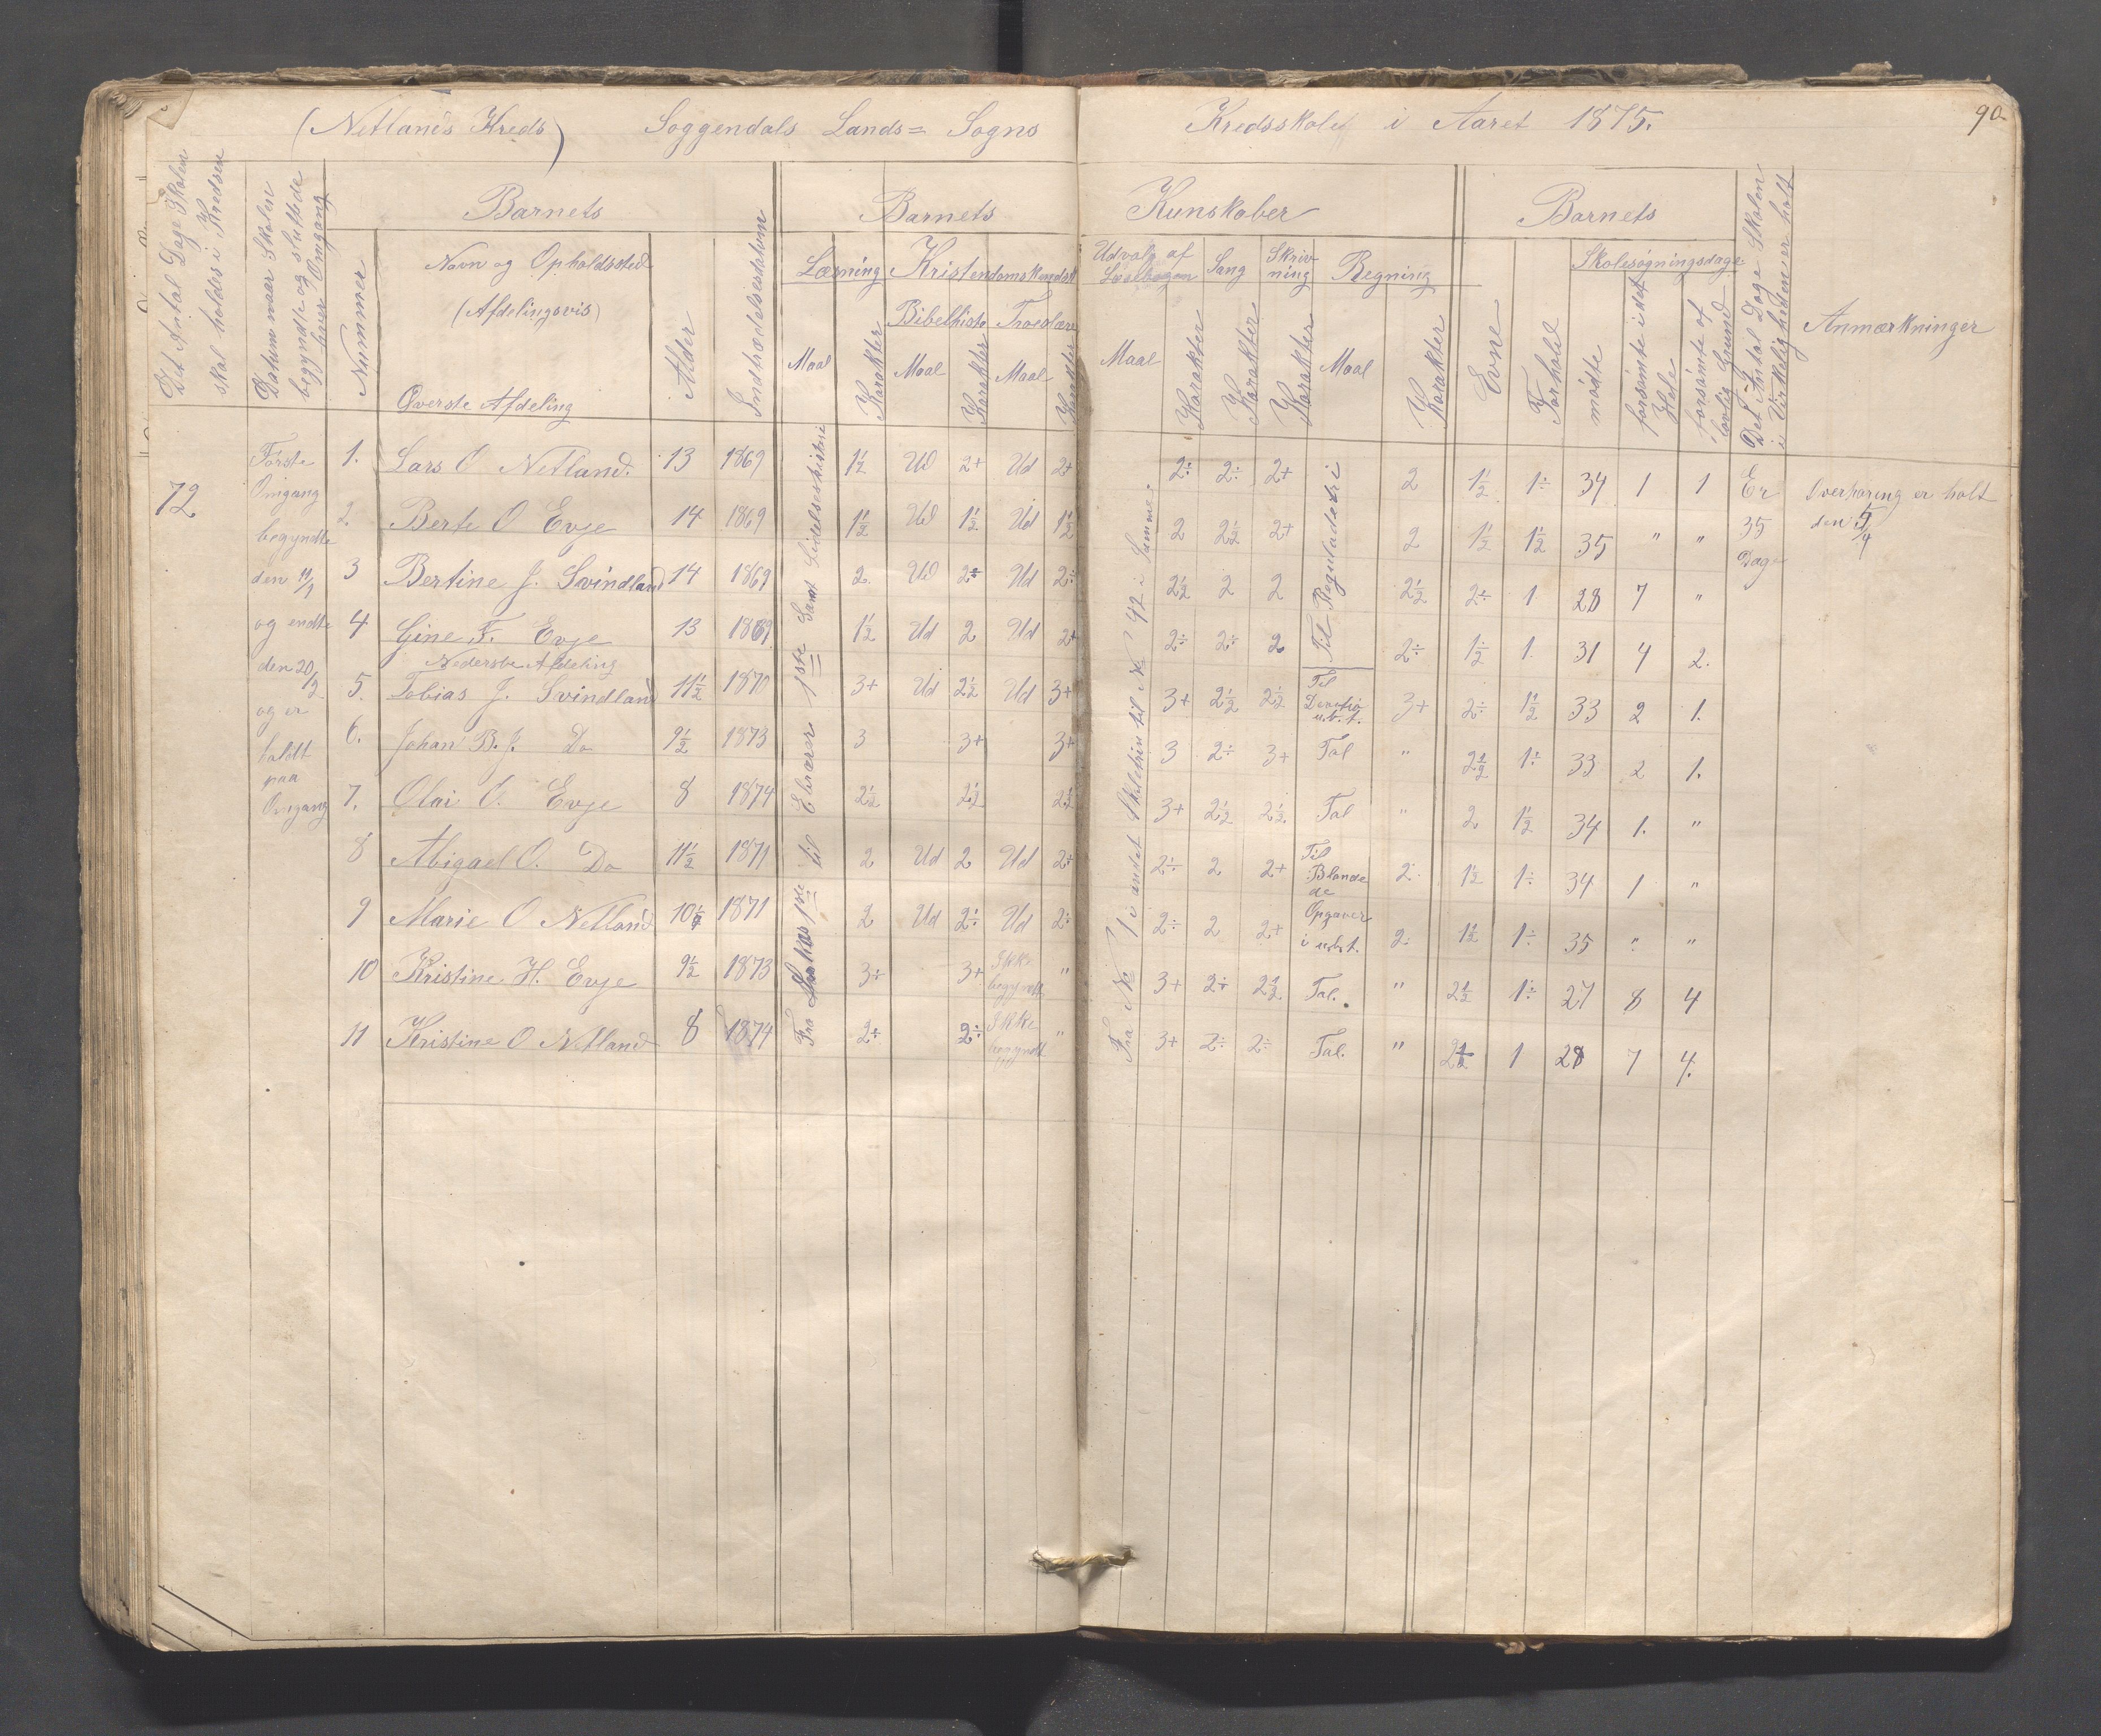 (Netlands Kreds) Soggendals Lands= Sogns Kredsskole i Aaret 1875. 90
Det Antal Dage Skolen skal holdes i Kredsen
Datum naar Skolen begyndte og sluttede hver Omgang
Nummer
Barnets
Navn og Opholdssted
(Afdelingsvis)
Øverste Afdeling
Alder
Indtrædelsesdatum
Barnets Kunskaber
Læsning Kristendomskundskab
Maal Karakter
Bibelhisto Troeslære
Maal Karakter Maal Karakter
Udvalg af Læsebogen Sang Skrivning Regning
Maal Karakter Karakter Karakter Maal Karakter
Barnets
Evne Forhold
Skolesøgningsdage
mødte forsømte i det Hele forsømte af lovlig Grund
Det Antal Dage Skolen i Virkeligheden er holt
Anmærkninger
72
Første
Omgang
begyndte
den 11/1
og endte
den 20/2
og er
holdt
paa
Omgang
1. Lars O Netland. 13 1869 1½ Ud 2+ Ud 2+ 2÷ 2÷ 2+ 2 1½ 1÷ 34 1 1
2. Berte O Evje 14 1869 1½ Ud 1½ Ud 1½ 2 2½ 2+ 2 1½ 1½ 35 " "
3 Bertine J. Svindland 14 1869 2. Ud 2÷ Ud 2÷ 2½ 2 2 2½ 2÷ 1 28 7 "
4 Gine F. Evje 13 1869 1½ Ud 2 Ud 2+ 2÷ 2÷ 2 2÷ 1½ 1 31 4 2.
Nederste Afdeling
5. Tobias J. Svindland 11½ 1870 3+ Ud 2½ Ud 3+ 3+ 2½ 2½ 3+ 2÷ 1½ 33 2 1.
6. Johan B. J. Do 9½ 1873 3 3+ 3+ 3 2÷ 3+ Tal " 2½ 1÷ 33 2 1.
7. Olai O. Evje 8 1874 2½ 2½ 2½ 3+ 2½ 2½ Tal " 2 1½ 34 1. "
8 Abigael O. Do 11½ 1871 2 Ud 2 Ud 2+ 2÷ 2 2+ 2÷ 1½ 1÷ 34 1 "
9 Marie O Netland 10½ 1871 2 Ud 2÷ Ud 2÷ 2÷ 2 2+ 2÷ 1½ 1÷ 35 " "
10 Kristine H. Evje 9½ 1873 3÷ 3+ Ikke begyndt " 3+ 2÷ 2½ Tal. " 2½ 1÷ 27 8 4
11 Kristine O Netland 8 1874 2÷ 2÷ Ikke begyndt " 3+ 2÷ 2÷ Tal. " 2½ 1 28 7 4.
Fra Lukas 1ste til Ebræer 1ste Samt Lidelseshistorie
Fra № 1 i andet til № 42 i Samme.
Til Reguladetri
Til
Til
Blande
de
Opgaver
i
Er
35
Dage
Overhøring er holt
den 5/4